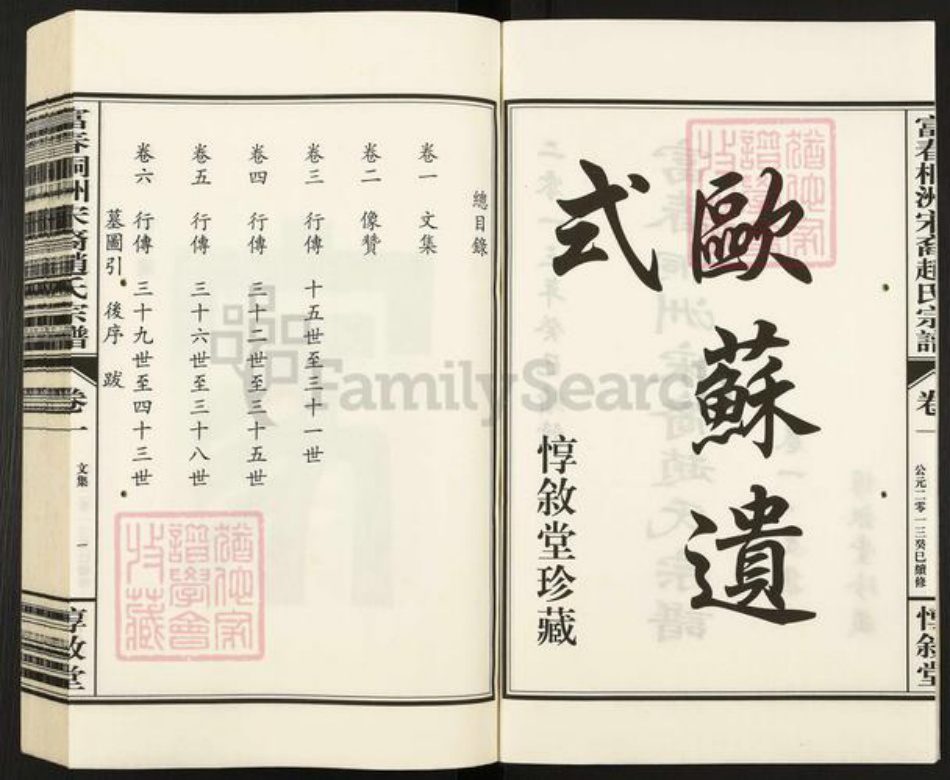 富春桐洲宋裔趙氏宗譜
卷一
公元二零一三癸巳續修
惇敘堂
歐蘇遺
式
惇敘堂珍藏
總目錄
卷一 文集
卷二 像贊
卷三 行傳 十五世至三十一世
卷四 行傳 三十二世至三十五世
卷五 行傳 三十六世至三十八世
卷六 行傳 三十九世至四十三世
墓圖引 後序 跋
富春桐洲宋裔趙氏宗譜
卷一
文集
一
惇敘堂
FamilySearch